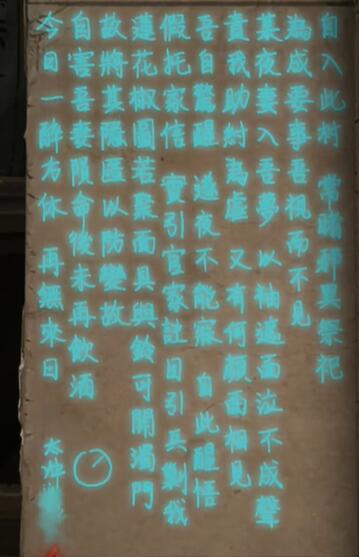 自入此村 常睹邪異祭祀
為成要事吾視而不見
某夜妻入吾夢 以袖遮面泣不成聲
責我助紂為虐 又有何顏面相見
吾自驚醒 遂夜不能寐 自此醒悟
假托家信 實引官家註目引兵剿我
蓮花椒圖若聚面具與可開濁門
故將其隱匿以防變故
自害吾妻隕命後未再飲酒
今日一醉方休 再無來日
太